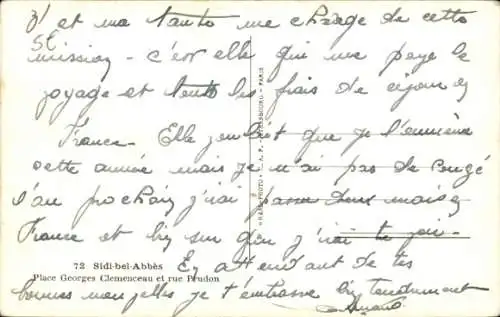 3/ et ma tante me charge de cette
mission - c'est elle qui me paye le
voyage et tout les frais de séjour en
France - Elle voulait que je l'emmène
cette année mais je n'ai pas de congé
l'an prochain j'irai passer deux mois en
France et bien sur que j'irai te voir.
72 Sidi-bel-Abbès
Place Georges Clemenceau et rue Prudon
En attendant de tes
bonnes nouvelles je t'embrasse bien tendrement
PHOTO
C. A. P.
STRASBOURG - PARIS